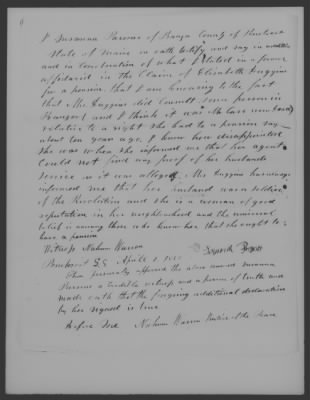 I Susanna Parsons of Bangor County of Penobscot
State of Maine on oath testify and say in addition
and in Continuation of what I stated in a former
affidavit in the Claim of Elizabeth Huggins
for a pension, that I am knowing to the fact
that Mrs Huggins did Consult some person in
Bangor and I think it was Mr
relative to a right she had to a pension say
about ten years ago, I know how disappointed
she was when she informed me that her agent
Could not find any proof of her husbands
service as it was alleged, Mrs Huggins has always
informed me that her husband was a soldier
of the Revolution and she is a woman of good
reputation in her neighborhood and the universal
belief is among those who know her that she ought to
have a pension
Witness Nahum Warren
Penobscot SS April
Then personally appeared the above named Susanna
Parsons a credible witness and a person of truth and
made oath that the foregoing additional declaration
by her signed is true
before me Nahum Warren Justice of the Peace